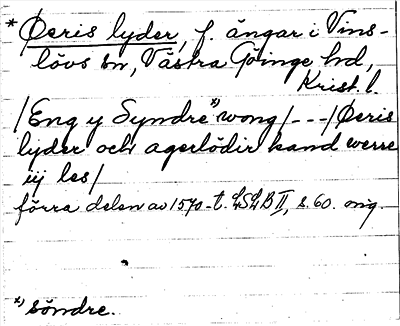 * Øeris lyder, f. ängar i Vins-
lövs sn, Västra Göinge hd,
Krist. l.
/Eng y Syndre *) wong/---/Øeris
lyder och agerlödir kand werre
iij les/
förra delen av 1570-t. LSLB II, s. 60. orig.
*) söndre.